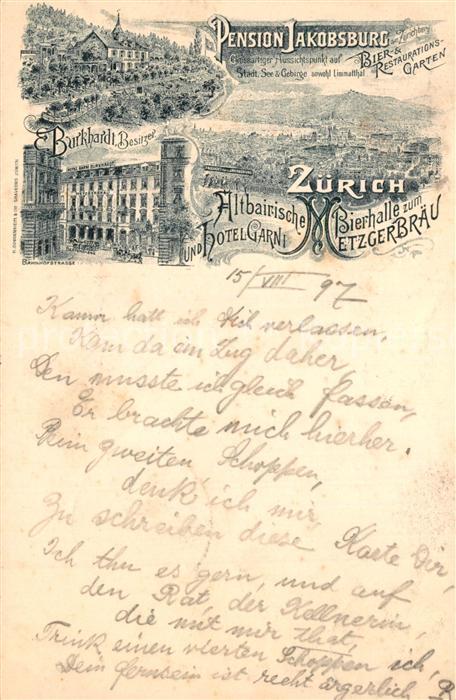 PENSION JAKOBSBURG
am Zürichberg
Grossartiger Aussichtspunkt auf
Stadt, See & Gebirge sowohl Limmatthal
BIER- &
RESTAURATIONS-
GARTEN
E. Burkhardt, Besitzer
ZÜRICH
Altbairische Bierhalle zum
UND HOTEL GARNI METZGERBRÄU
BAHNHOFSTRASSE
15/VIII 97
Kaum hatt ich Dich verlassen,
Kam da ein Zug daher,
Den musste ich gleich fassen,
Er brachte mich hierher.
Beim zweiten Schoppen,
denk ich mir,
Zu schreiben diese Karte Dir,
Ich thu es gern, und auf
den Rat, der Kellnerin,
die mit mir that,
Trink einen vierten Schoppen ich,
Dein fernsein ist recht ärgerlich